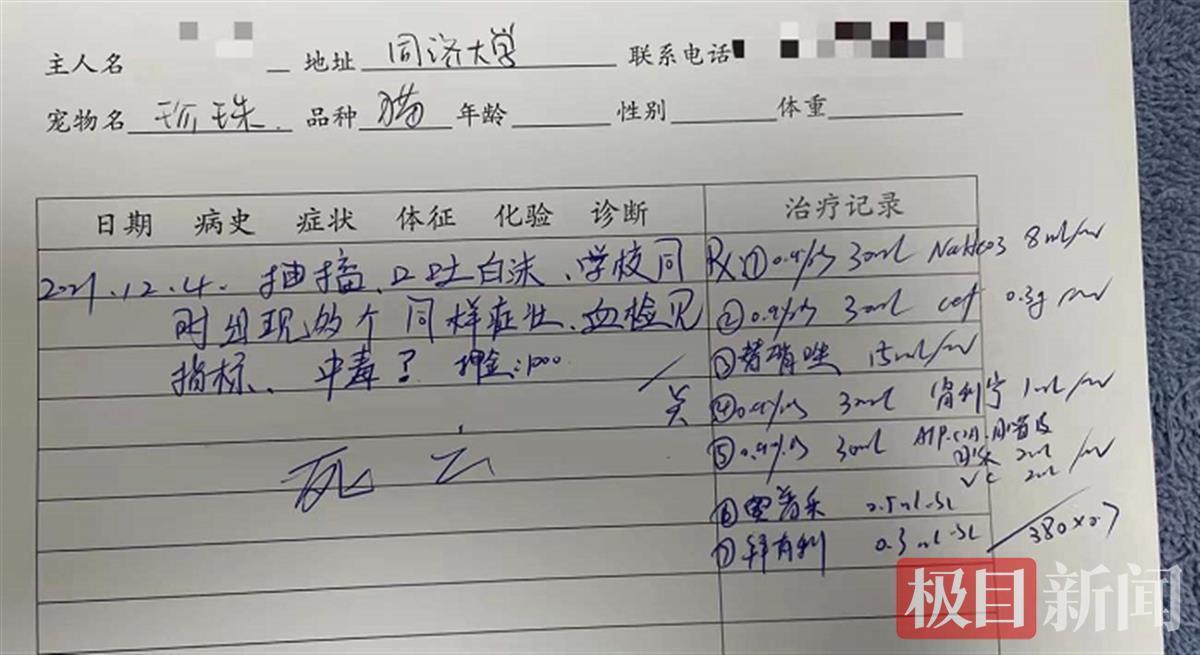 主人名 地址 同济大学 联系电话
宠物名 珍珠 品种 猫 年龄 性别 体重
日期 病史 症状 体征 化验 诊断 治疗记录
2021.12.4. 抽搐、口吐白沫、学校同
时出现 个 同样症状、血检见
指标、中毒？ 押金:1000
死亡
Rx ① 0.9% 30ml NaHCO3 8ml/iv
② 0.9% 30ml cef 0.3g iv
③ 替硝唑 15ml/iv
④ 0.9% 30ml 肾利宁 1ml/iv
⑤ 0.9% 30ml ATP.COA.
2ml
VC 2ml /iv
⑥ 0.5ml.sc
⑦ 拜有利 0.3ml.sc
380×0.7
极目新闻